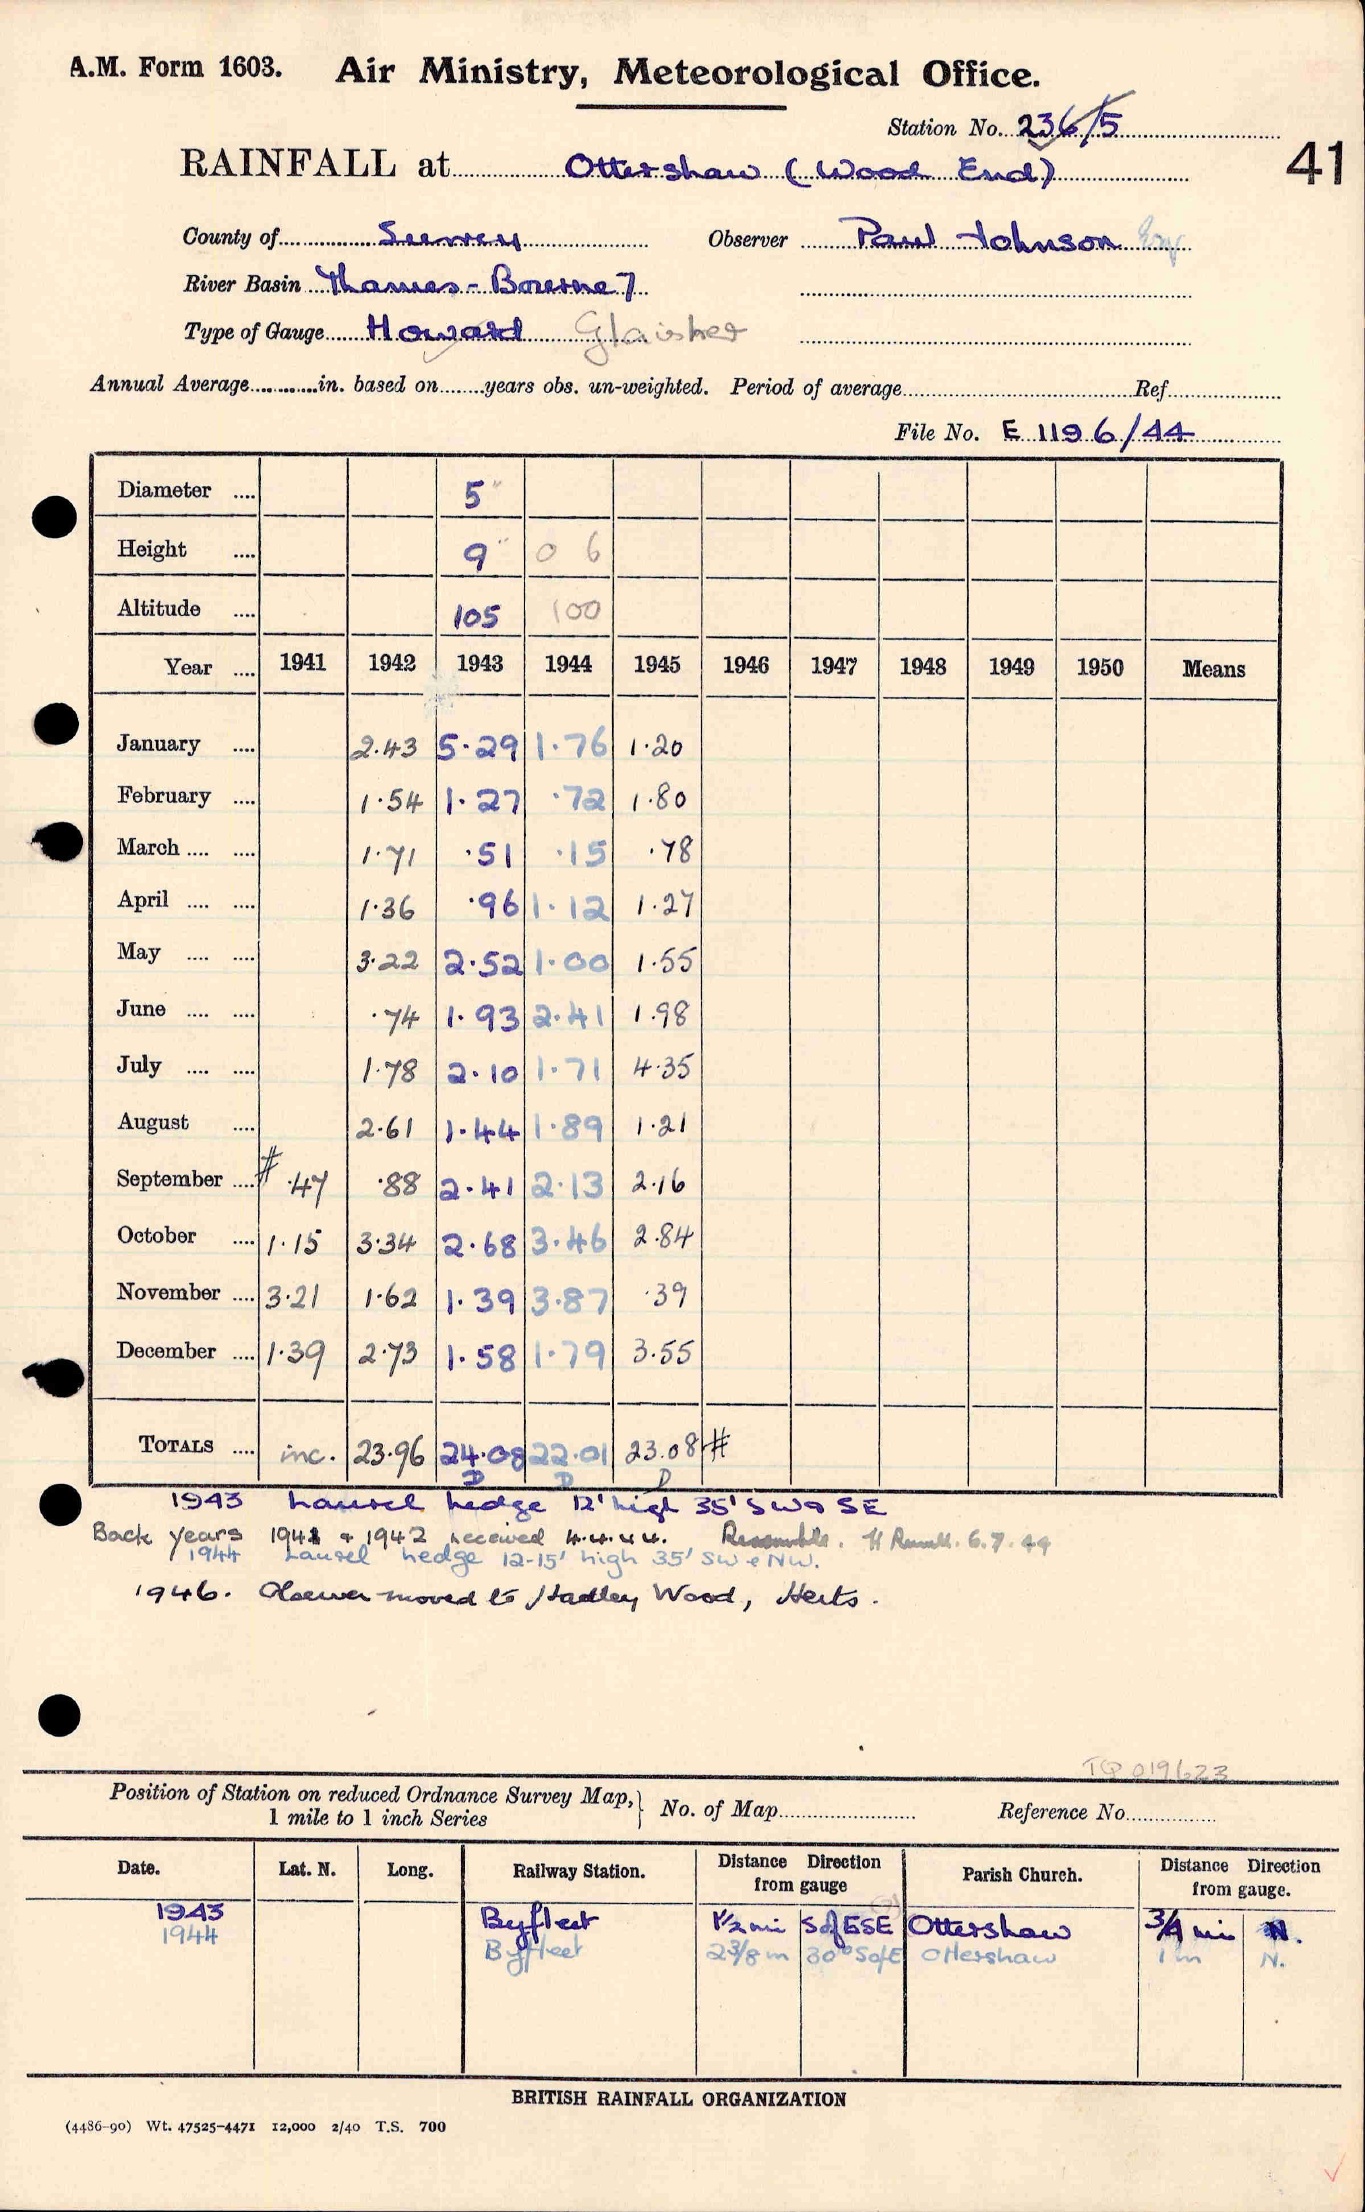 A.M. Form 1603. Air Ministry, Meteorological Office.
Station No. 236/5
RAINFALL at Ottershaw (Wood End) 41
County of Surrey Observer Paul Johnson Esq
River Basin Thames - Bourne 7
Type of Gauge Howard Glaisher
Annual Average in. based on years obs. un-weighted. Period of average Ref.
File No. E 1196/44
Diameter 5"
Height 9" 0 6
Altitude 105 100
Year 1941 1942 1943 1944 1945 1946 1947 1948 1949 1950 Means
January 2.43 5.29 1.76 1.20
February 1.54 1.27 .72 1.80
March 1.71 .51 .15 .78
April 1.36 .96 1.12 1.27
May 3.22 2.52 1.00 1.55
June .74 1.93 2.41 1.98
July 1.78 2.10 1.71 4.35
August 2.61 1.44 1.89 1.21
September # .47 .88 2.41 2.13 2.16
October 1.15 3.34 2.68 3.46 2.84
November 3.21 1.62 1.39 3.87 .39
December 1.39 2.73 1.58 1.79 3.55
TOTALS inc. 23.96 24.08 22.01 23.08 #
D D D
1943 Laurel hedge 12' high 35' SW & SE
Back years 1941 & 1942 received 4.4.44. 6.7.44
1944 Laurel hedge 12-15' high 35' SW & NW.
1946. Observer moved to Hadley Wood, Herts.
TQ 019623
Position of Station on reduced Ordnance Survey Map, 1 mile to 1 inch Series } No. of Map Reference No.
Date. Lat. N. Long. Railway Station. Distance Direction from gauge Parish Church. Distance Direction from gauge.
1943 Byfleet 1½ mi S of ESE Ottershaw 3/4 mi N.
1944 Byfleet 2 3/8 m 30° S of E Ottershaw 1 m N.
BRITISH RAINFALL ORGANIZATION
(4486-90) Wt. 47525-4471 12,000 2/40 T.S. 700